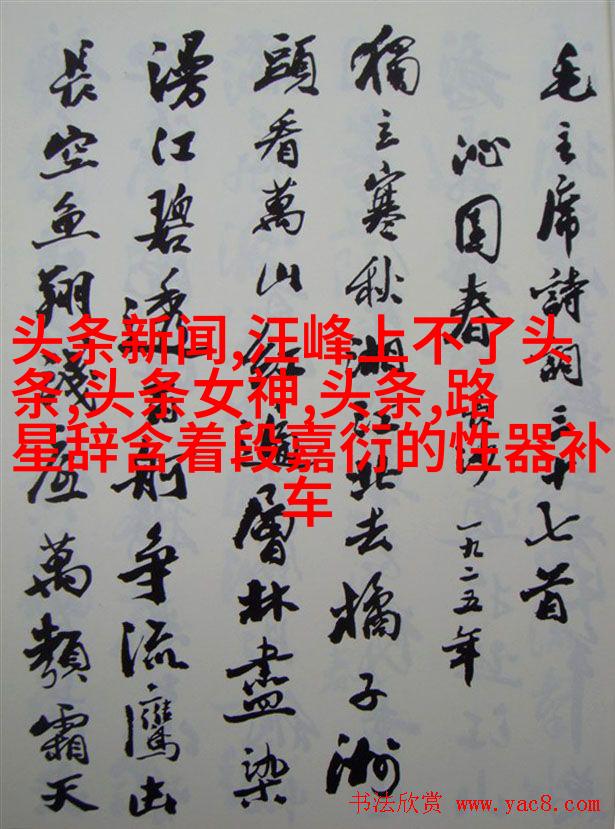 毛主席詩詞三十七首
沁园春 長沙 一九二五年
獨立寒秋湘江北去橘子洲
頭看萬山紅遍層林盡染
漫江碧透百舸争流鷹击
長空魚翔淺底萬類霜天
头条新闻,汪峰上不了头
条,头条女神,头条,路
星辞含着段嘉衍的性器补
车
书法欣赏 www.yac8.com